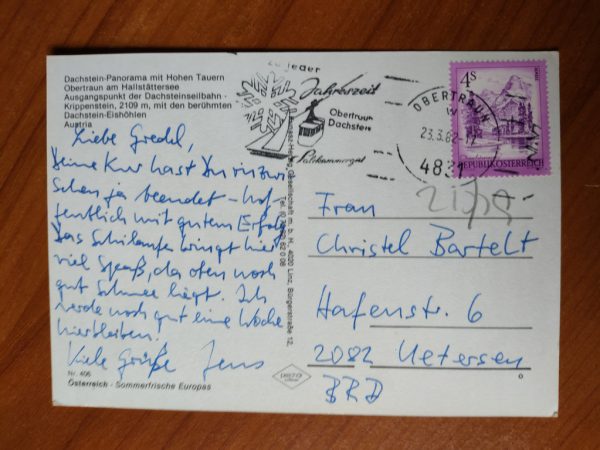 Dachstein-Panorama mit Hohen Tauern
Obertraun am Hallstättersee
Ausgangspunkt der Dachsteinseilbahn -
Krippenstein, 2109 m, mit den berühmten
Dachstein-Eishöhlen
Austria
Liebe Gredel,
Deine Kur hast Du inzwi-
schen ja beendet - hof-
fentlich mit gutem Erfolg
Das Schilaufen bringt hier
viel Spaß, da oben noch
gut Schnee liegt. Ich
werde noch gut eine Woche
hierbleiben.
Viele Grüße Jens
Nr. 406
Österreich - Sommerfrische Europas
Gesellschaft m. b. H., 4020 Linz, Bürgerstraße 12,
zu jeder
Jahreszeit
Obertraun
Dachstein
Salzkammergut
OBERTRAUN
23.3.82
4831
4S
REPUBLIK ÖSTERREICH
Frau
Christel Bartelt
Hafenstr. 6
2082 Uetersen
BRD